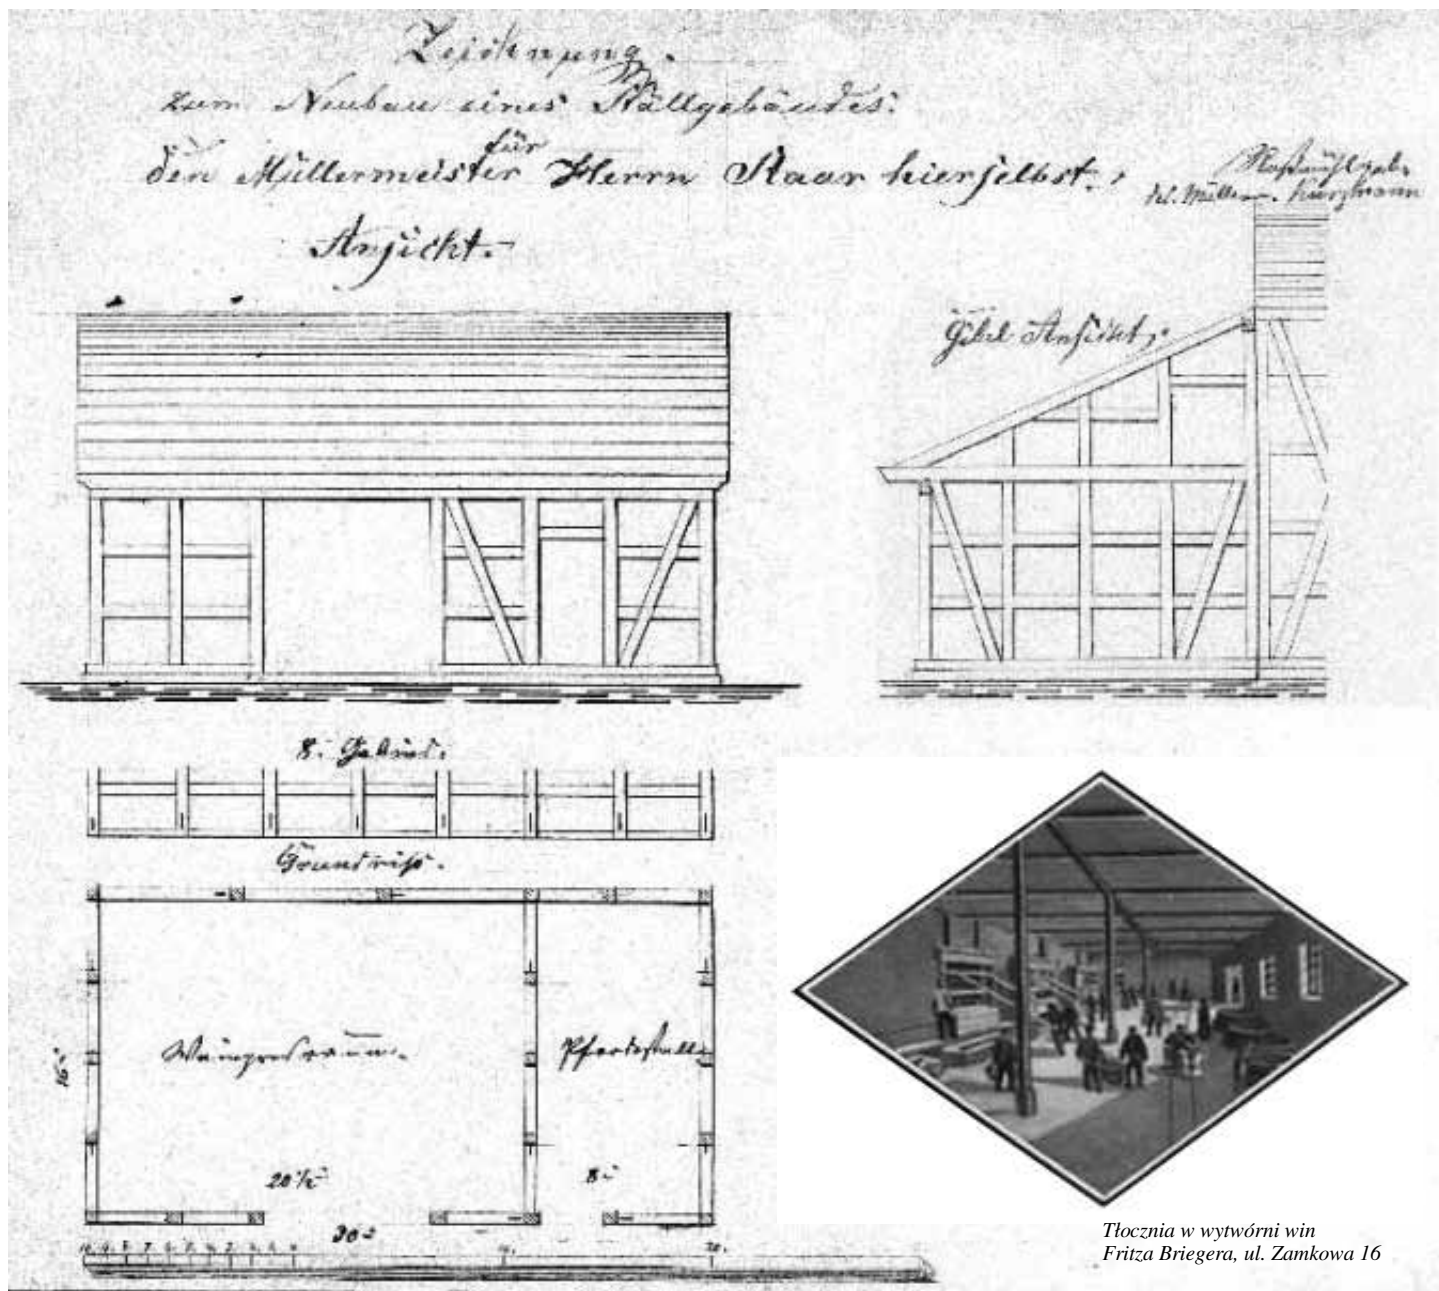 Zeichnung.
zum Neubau eines Stallgebäudes.
für
den Müllermeister Herrn Staar hierselbst.
des. Müller Kurzmann
Ansicht.
Gibel Ansicht.
8. Gebind.
Grundriss.
Weinpressraum.
Pferdestall
16'
20½'
8'
30'
Tłocznia w wytwórni win
Fritza Briegera, ul. Zamkowa 16